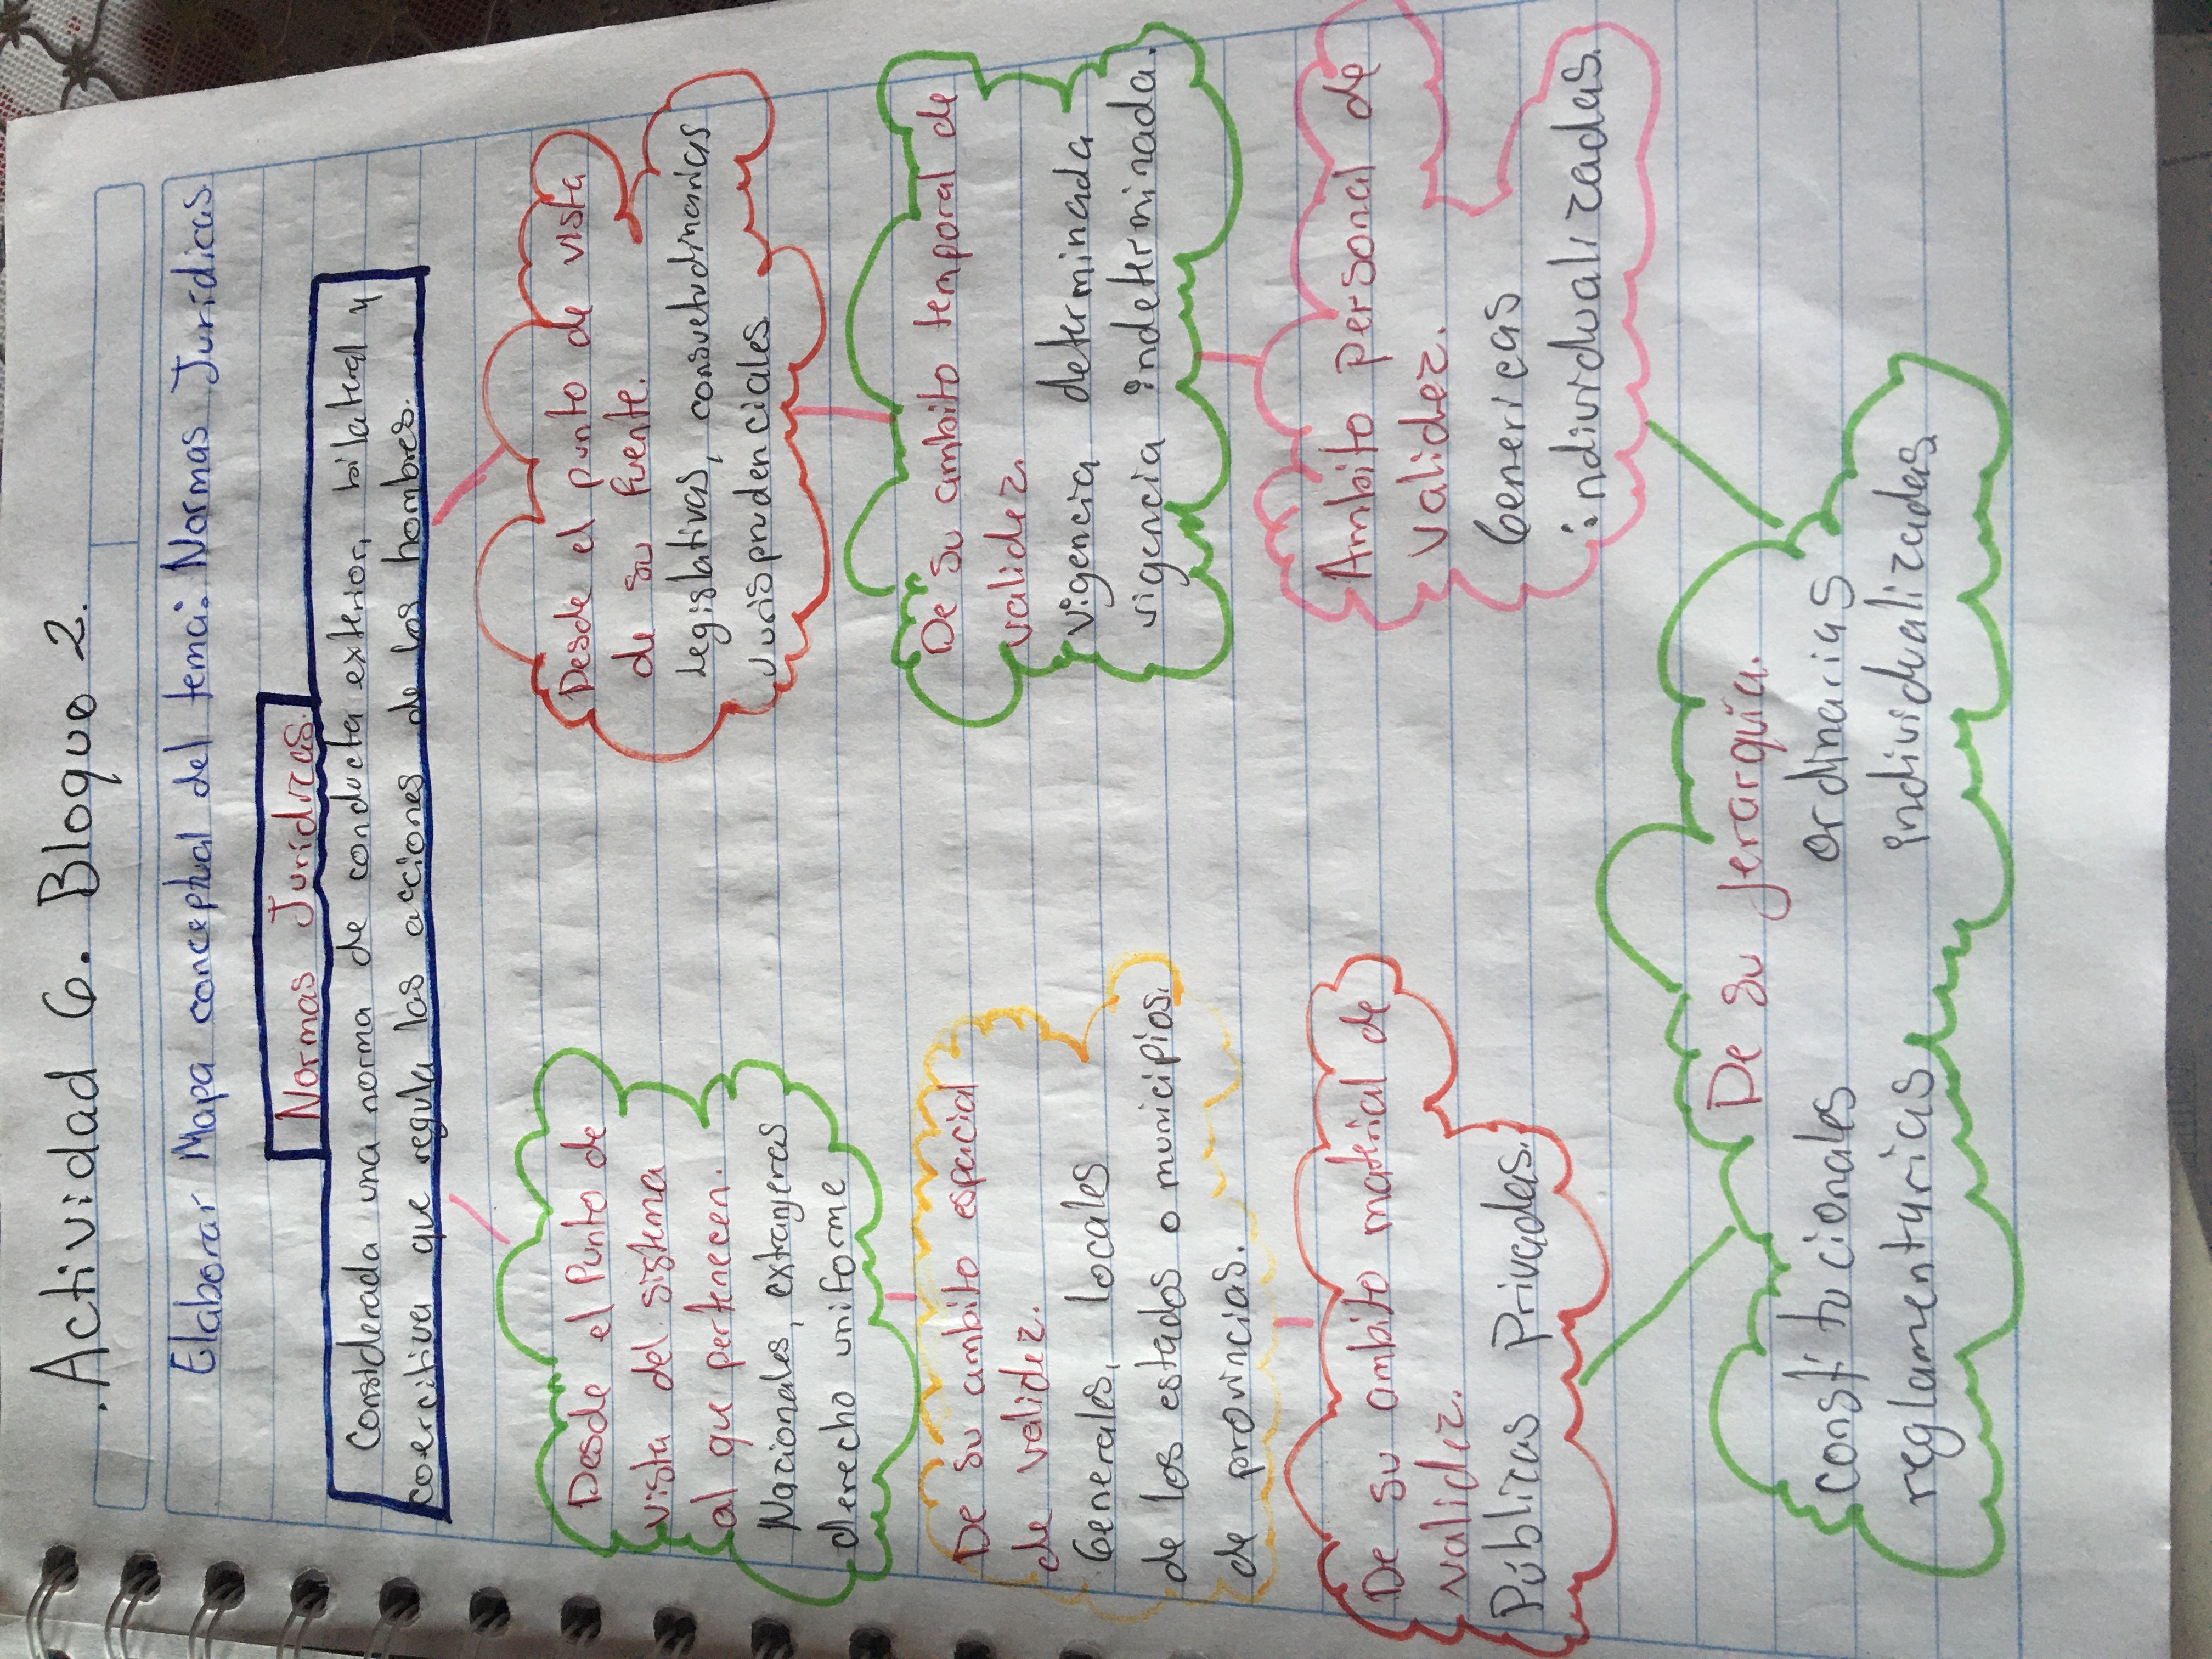 Actividad 6. Bloque 2.
Elaborar Mapa conceptual del tema: Normas Jurídicas.
Normas Jurídicas.
Considerada una norma de conducta exterior, bilateral y
coercitiva que regula las acciones de los hombres.
Desde el Punto de
vista del sistema
al que pertenecen.
Nacionales, extrangeras
derecho uniforme
Desde el punto de vista
de su fuente.
Legislativas, consuetudinarias
Jurisprudenciales
De su ambito espacial
de validez.
Generales, locales
de los estados o municipios.
de provincias.
De su ambito temporal de
validez.
vigencia determinada
vigencia indeterminada.
De su ambito material de
validez.
Públicas Privadas.
Ambito personal de
validez.
Genericas
individualizadas.
De su jerarquía.
constitucionales
reglamentarias
ordinarias
individualizadas